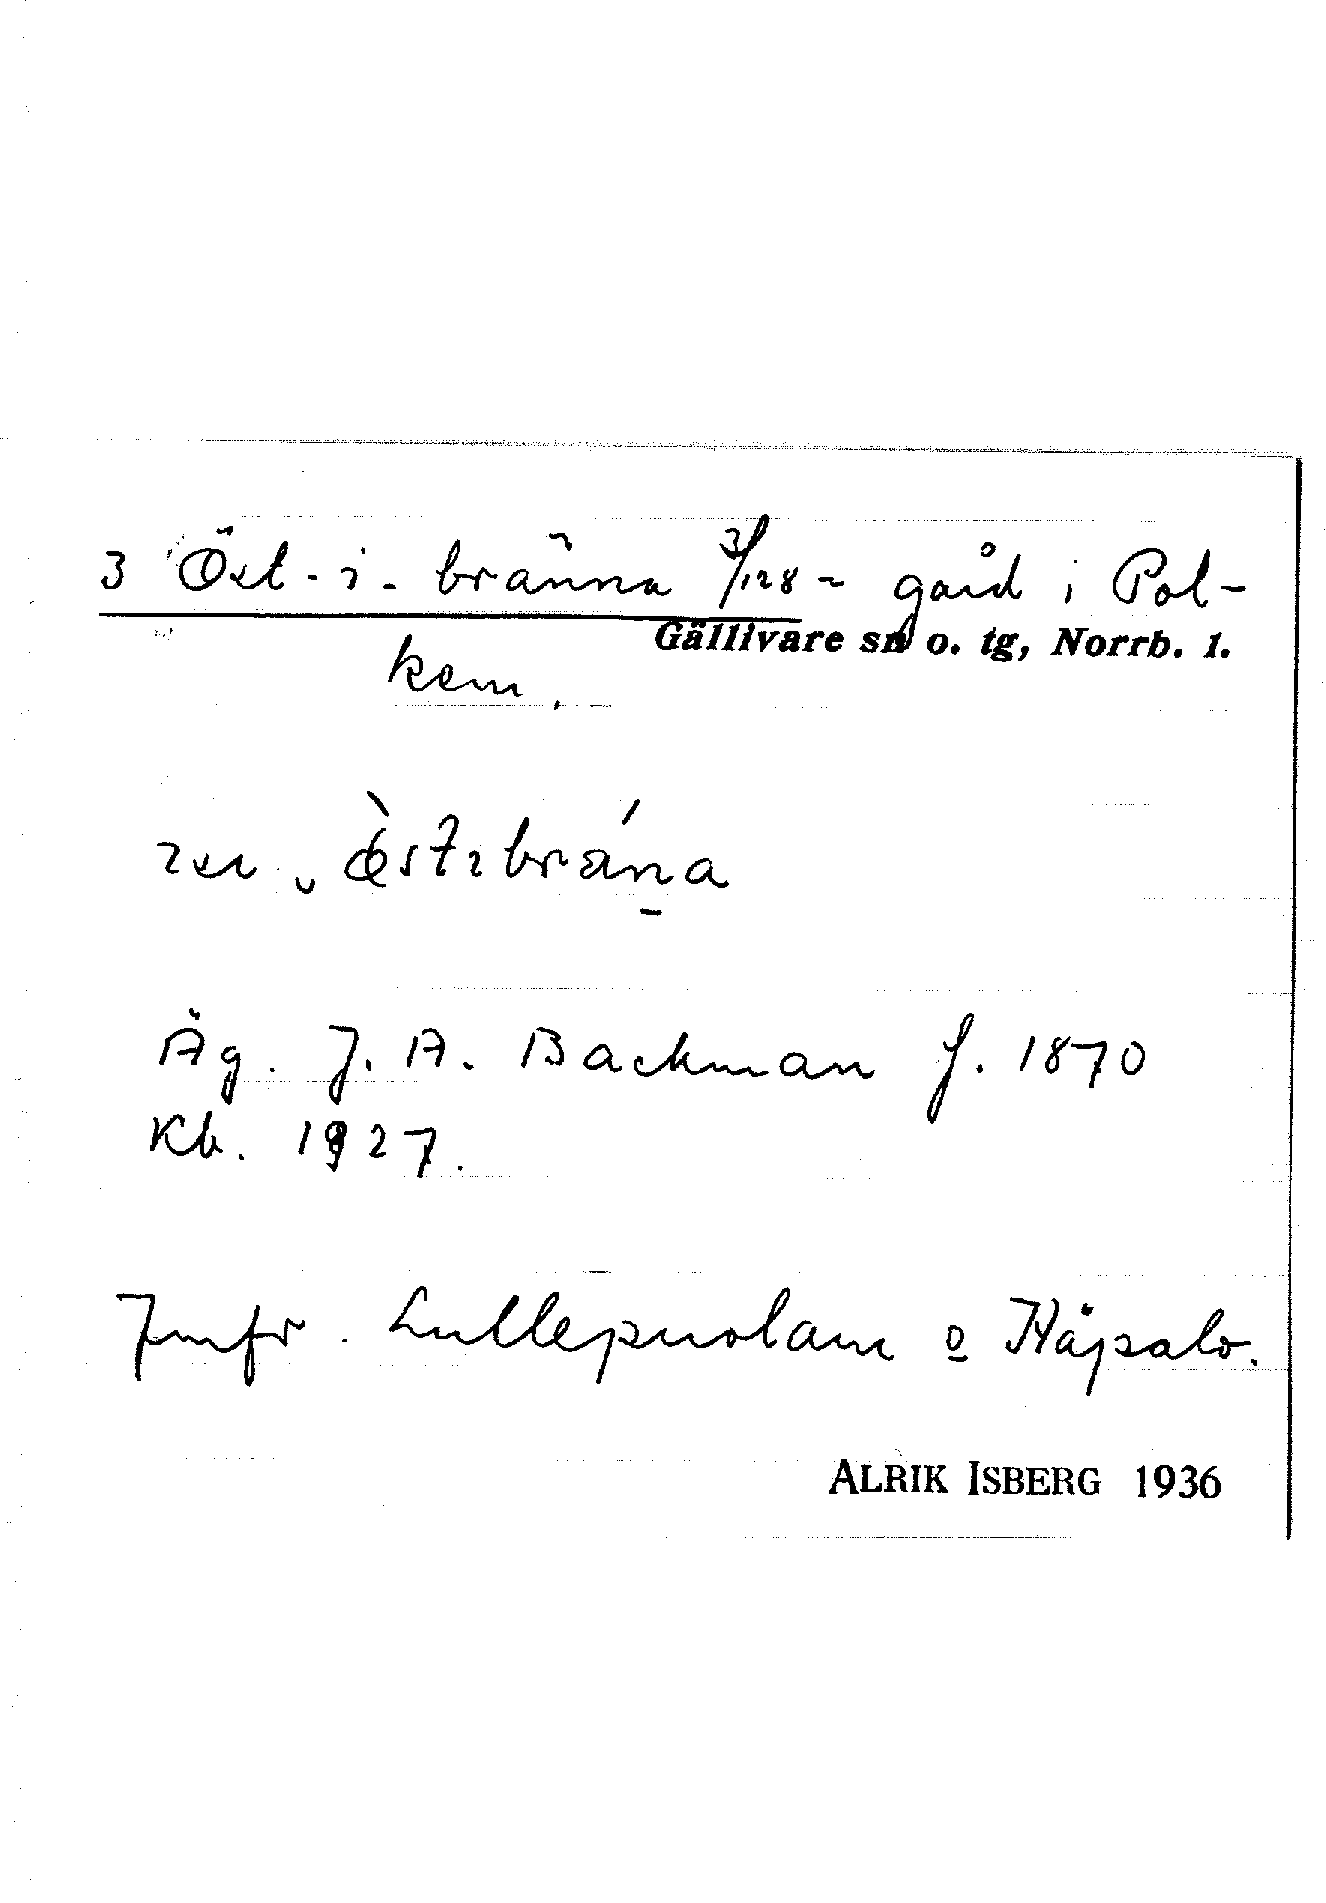 3 Öst-i-bränna 3/128 - gård i Pol-
Gällivare sn o. tg, Norrb. l.
kem.
Äg. J. A. Backman f. 1870
Kb. 1927.
Jmfr. Lullepuolam o
ALRIK ISBERG 1936